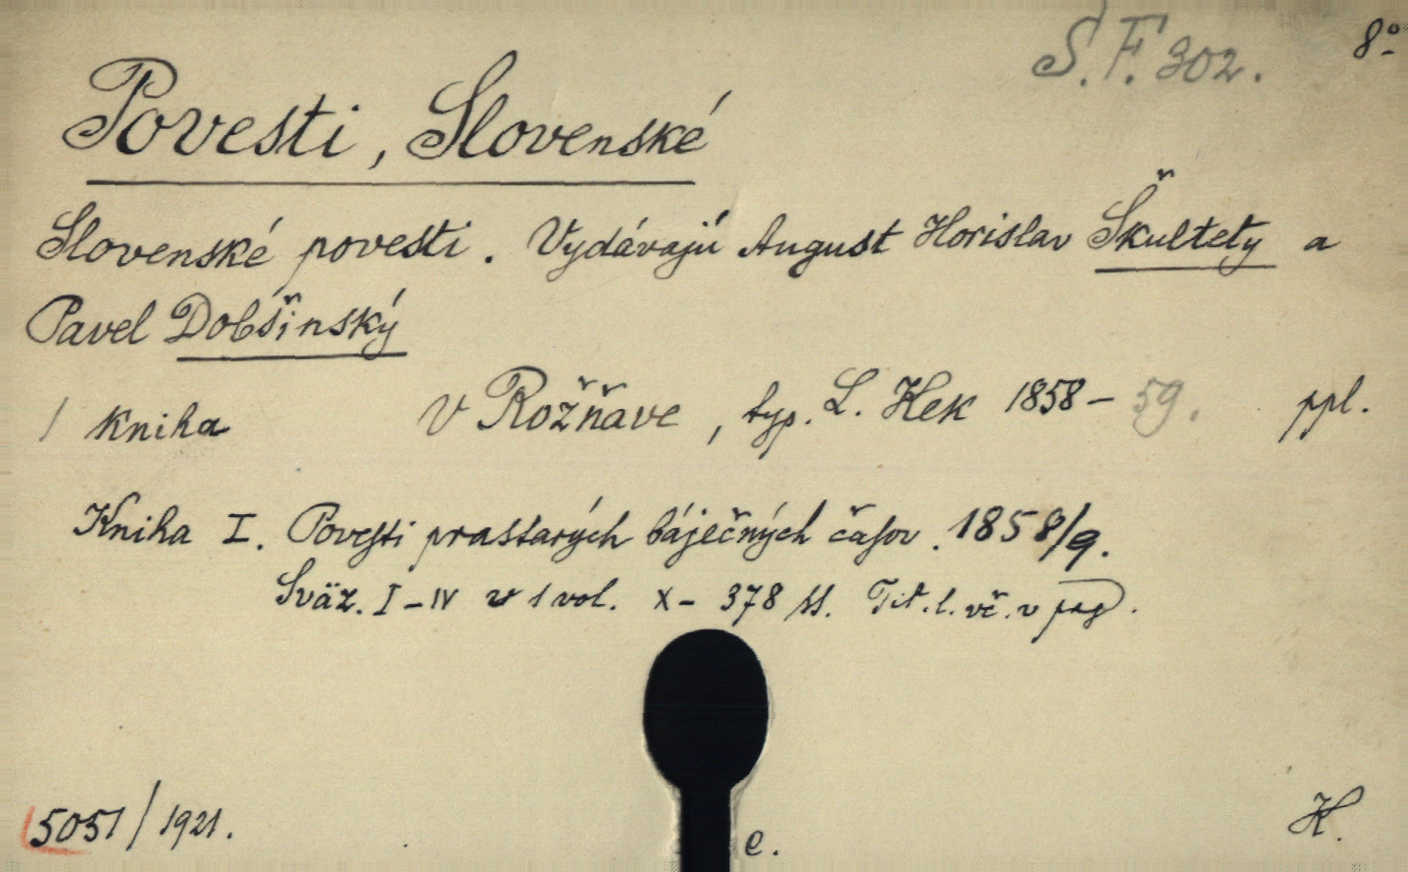 S. F. 302. 8°
Povesti, Slovenské
Slovenské povesti. Vydávajú August Horislav Škultety a
Pavel Dobšinský
1 kniha v Rožňave, typ. L. Kek 1858–59. ppl.
Kniha I. Povesti prastarých báječných časov. 1858/9.
Sväz. I–IV v 1 vol. X–378 ss. Tit. l. vč. v pag.
5051/1921. e. H.